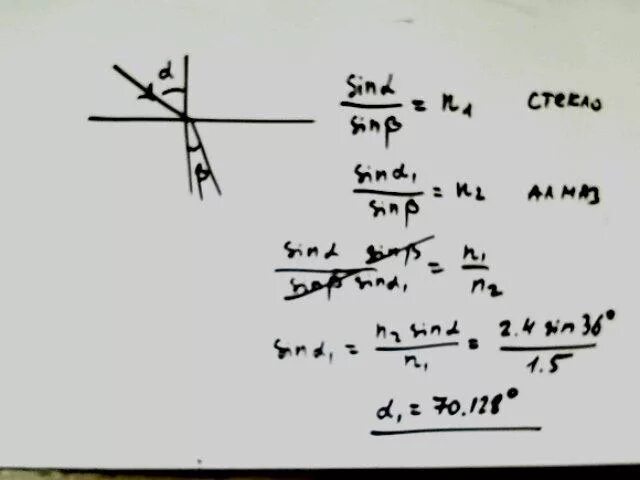 α
β
sinα / sinβ = n₁ стекло
sinα₁ / sinβ = n₂ алмаз
sinα sinβ / sinβ sinα₁ = n₁ / n₂
sinα₁ = n₂ sinα / n₁ = 2.4 sin36° / 1.5
α₁ = 70.128°